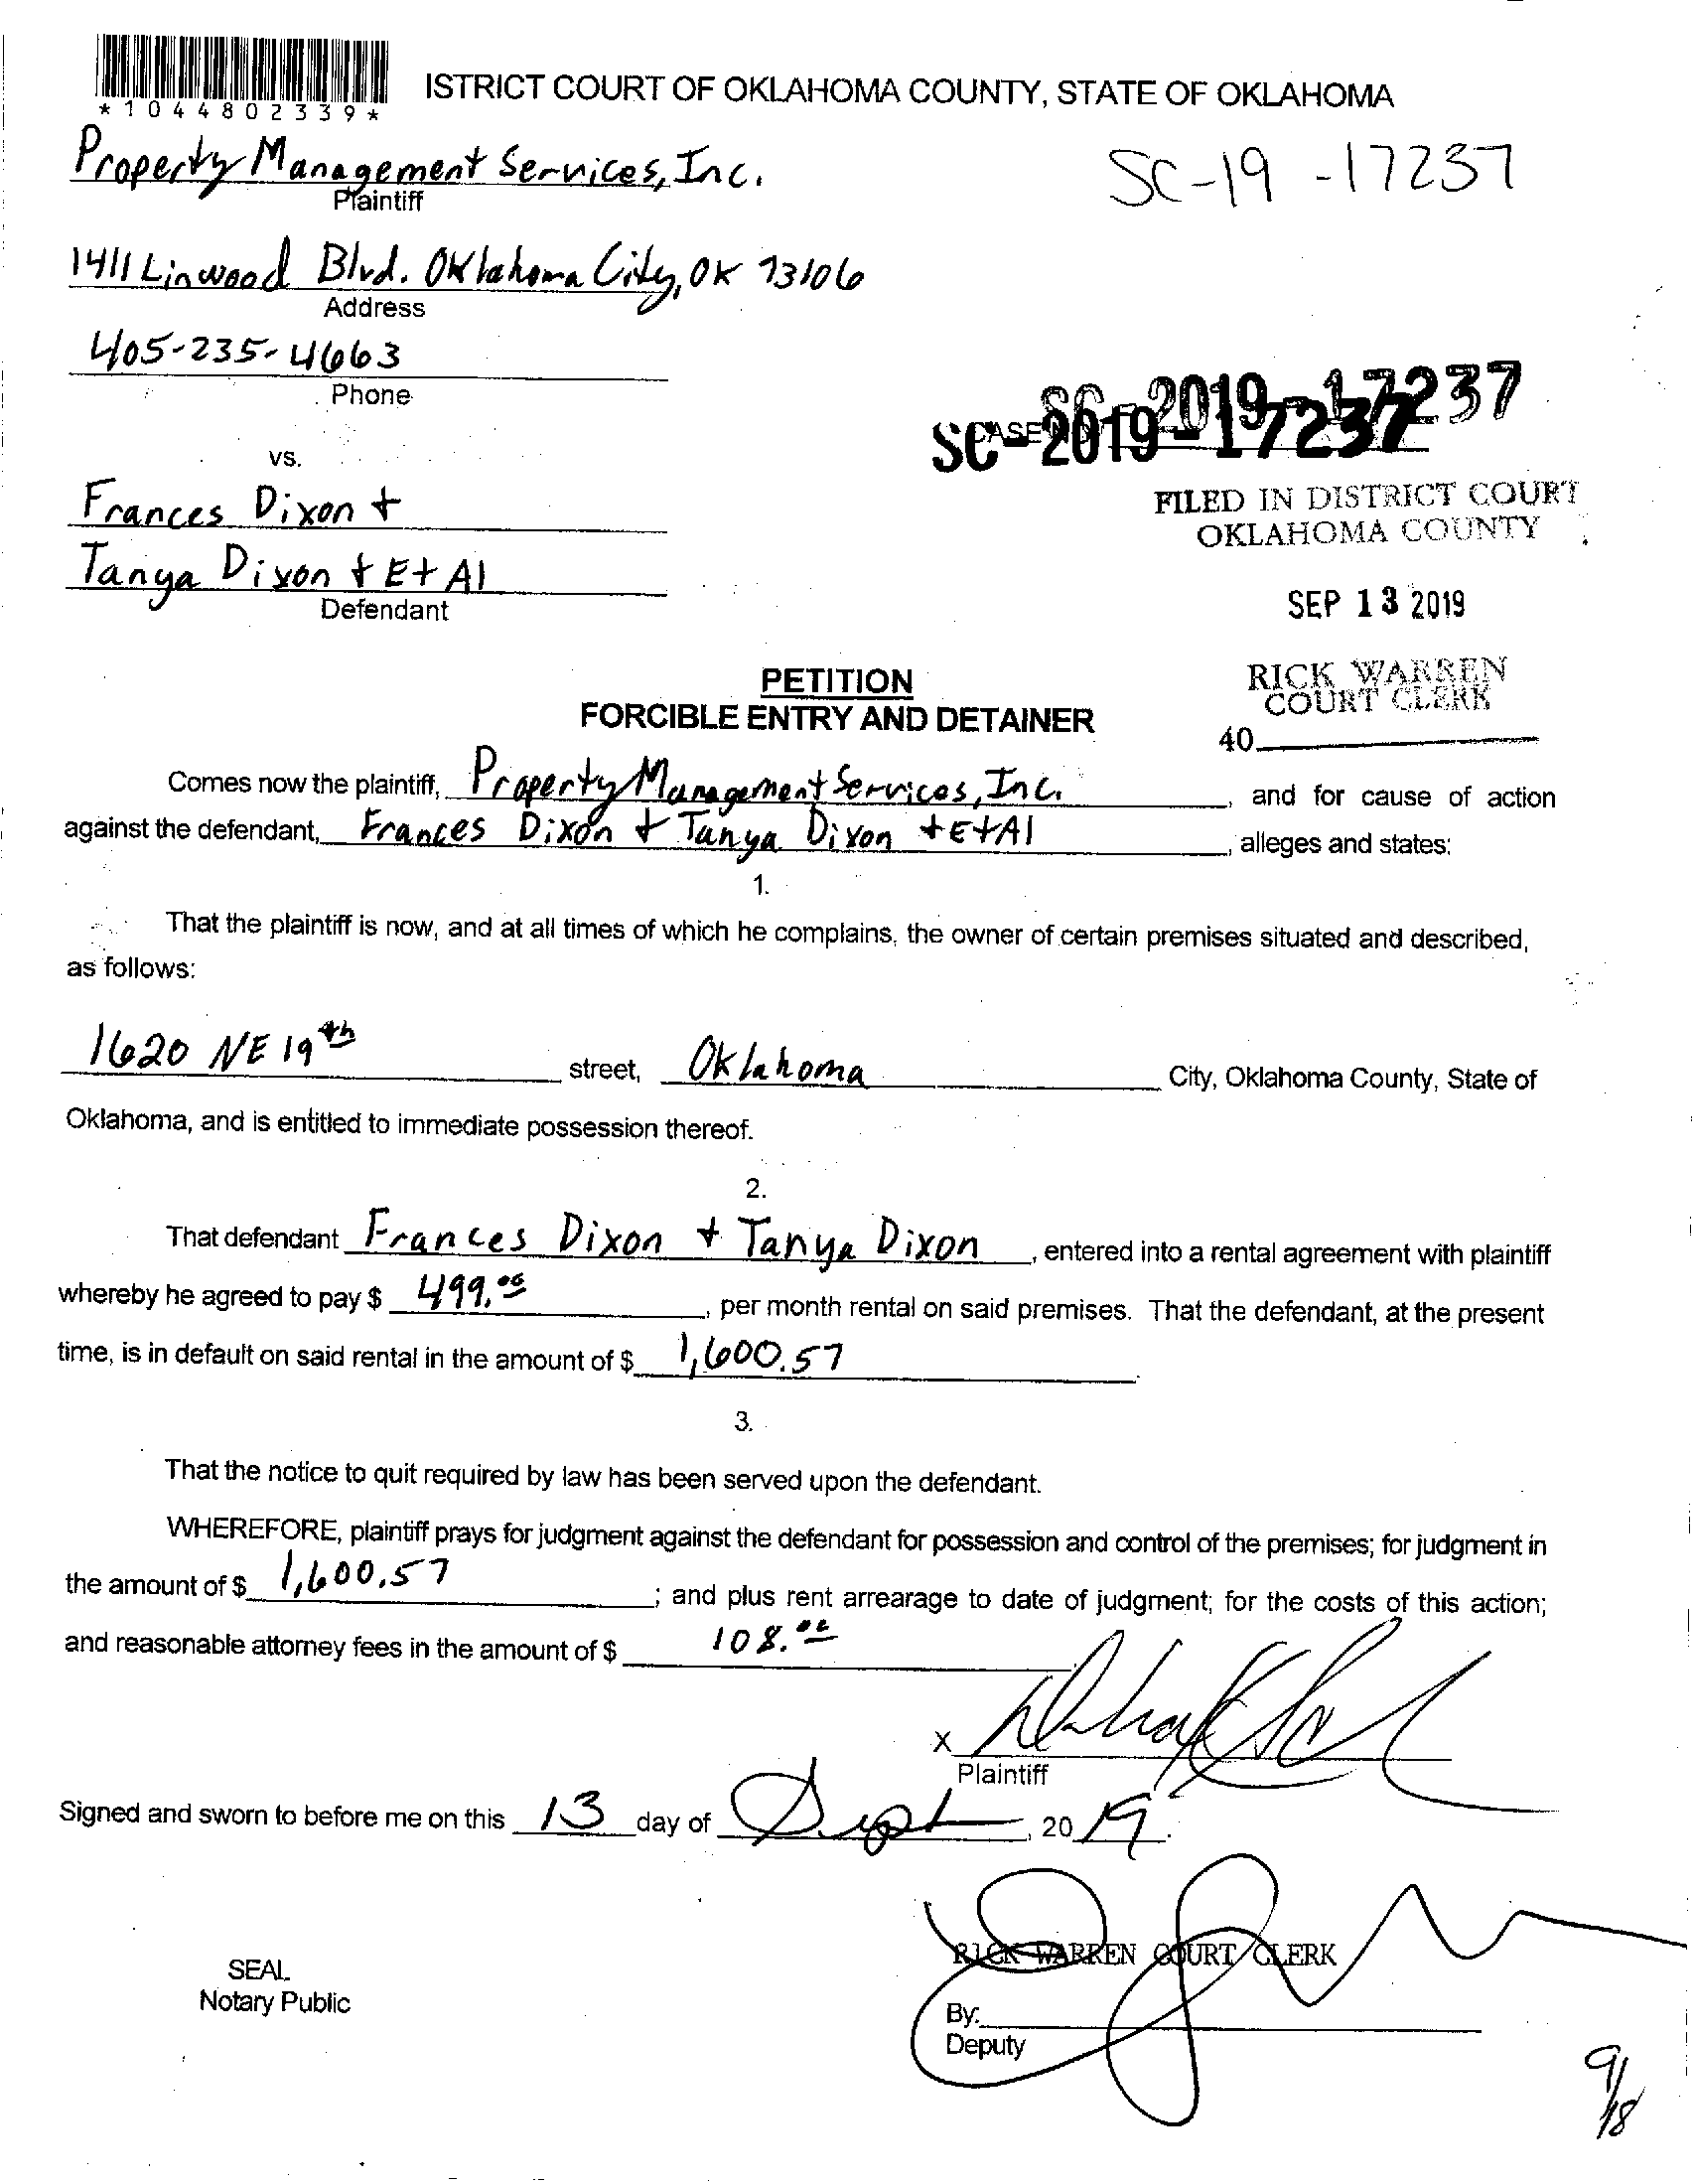 *1044802339*
ISTRICT COURT OF OKLAHOMA COUNTY, STATE OF OKLAHOMA
Property Management Services, Inc.
Plaintiff
SC-19-17237
1411 Linwood Blvd. Oklahoma City, OK 73106
Address
405-235-4663
Phone
SC-2019-17237
SC-2019-17237
CASE
vs.
Frances Dixon +
Tanya Dixon + Et Al
Defendant
FILED IN DISTRICT COURT
OKLAHOMA COUNTY
SEP 13 2019
RICK WARREN
COURT CLERK
40
PETITION
FORCIBLE ENTRY AND DETAINER
Comes now the plaintiff, Property Management Services, Inc. , and for cause of action
against the defendant, Frances Dixon + Tanya Dixon + Et Al , alleges and states:
1.
That the plaintiff is now, and at all times of which he complains, the owner of certain premises situated and described,
as follows:
1620 NE 19th street, Oklahoma City, Oklahoma County, State of
Oklahoma, and is entitled to immediate possession thereof.
2.
That defendant Frances Dixon + Tanya Dixon , entered into a rental agreement with plaintiff
whereby he agreed to pay $ 499.00 , per month rental on said premises. That the defendant, at the present
time, is in default on said rental in the amount of $ 1,600.57 .
3.
That the notice to quit required by law has been served upon the defendant.
WHEREFORE, plaintiff prays for judgment against the defendant for possession and control of the premises; for judgment in
the amount of $ 1,600.57 ; and plus rent arrearage to date of judgment; for the costs of this action;
and reasonable attorney fees in the amount of $ 108.00 .
X
Plaintiff
Signed and sworn to before me on this 13 day of Sept , 2019.
RICK WARREN COURT CLERK
SEAL
Notary Public
By:
Deputy
9/18